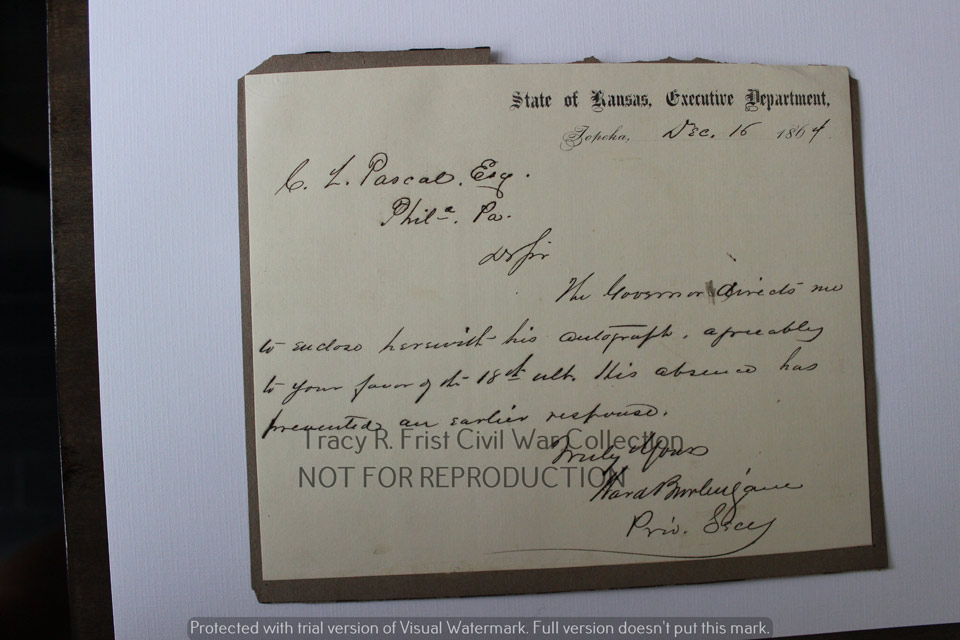 State of Kansas, Executive Department,
Topeka, Dec. 16 1864.
C. L. Pascal. Esq.
Phila. Pa.
Dr Sir
The Governor directs me
to enclose herewith his autograph, agreeably
to your favor of the 18th ult. His absence has
prevented an earlier response.
Truly Yours
Ward Burlingame
Priv. Secy
Tracy R. Frist Civil War Collection
NOT FOR REPRODUCTION
Protected with trial version of Visual Watermark. Full version doesn't put this mark.